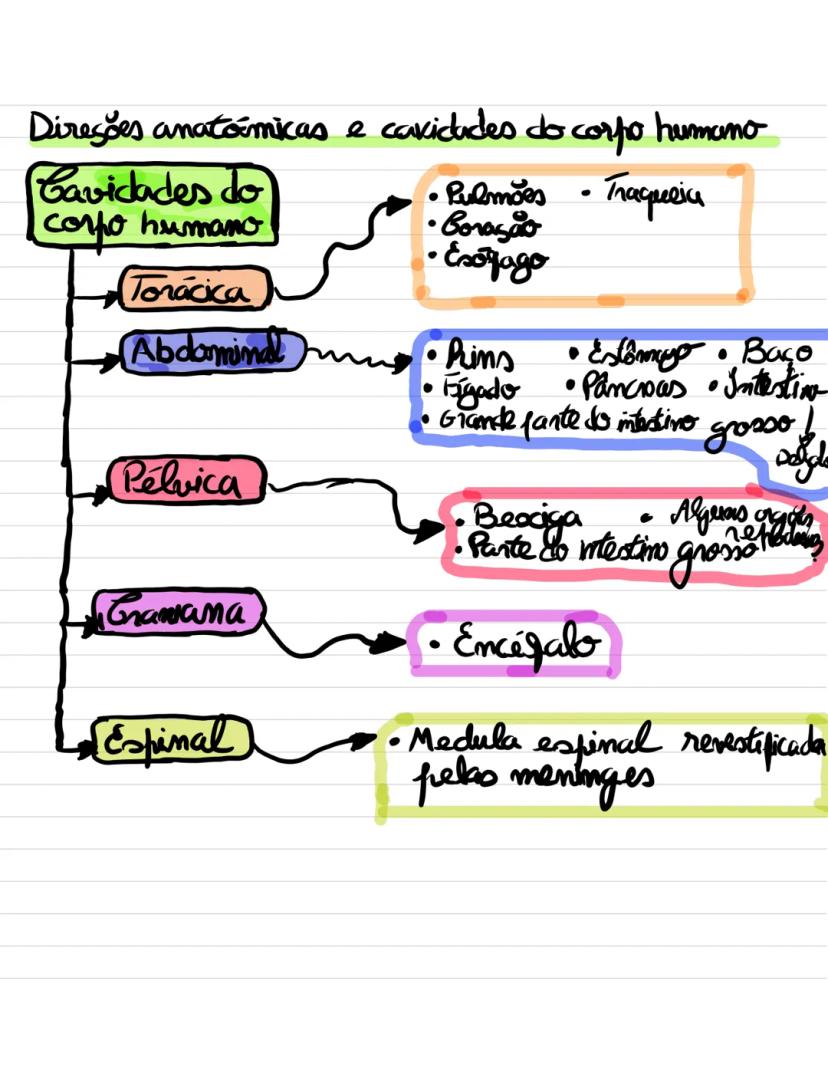 Direções anatómicas e cavidades do corpo humano
Cavidades do
corpo humano
Torácica
• Pulmões • Traqueia
• Coração
• Esófago
Abdominal
• Rins • Estômago • Baço
• Fígado • Pâncreas • Intestino
• Grande parte do intestino grosso
Pélvica
• Bexiga • Alguns orgãos
• Parte do intestino grosso
Craniana
• Encéfalo
Espinal
• Medula espinal revestificada
pelas meninges